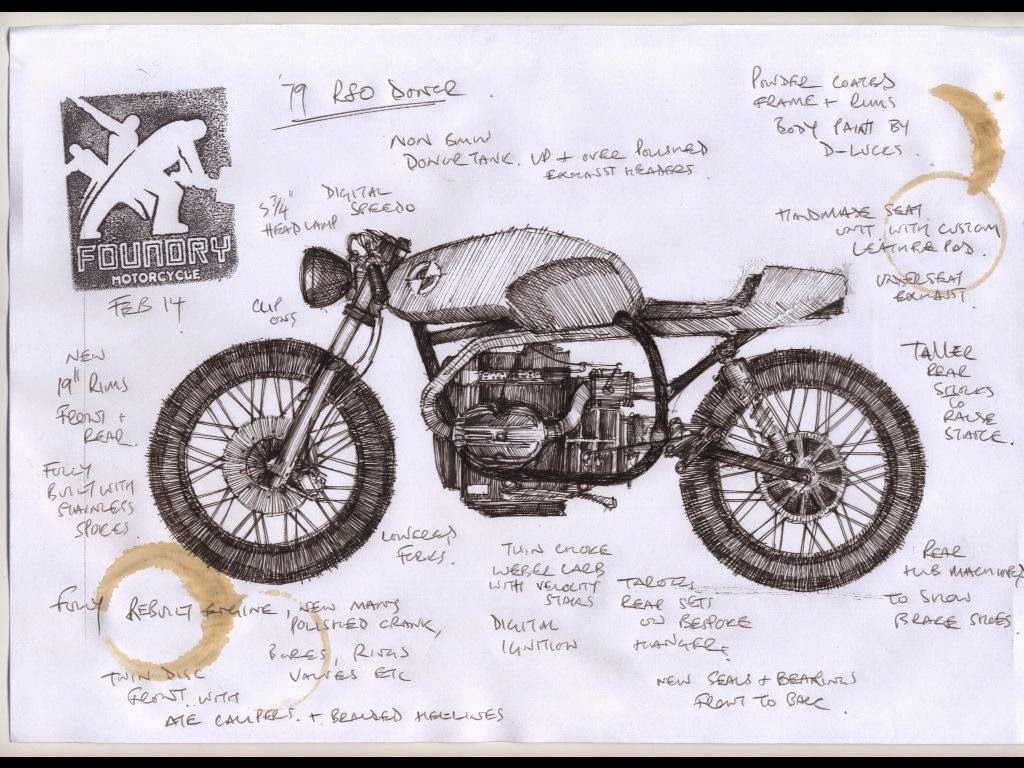 '79 R80 DONOR
POWDER COATED
FRAME + RIMS
BODY PAINT BY
D-LUCKS.
NON BMW
DONOR TANK.
UP + OVER POLISHED
EXHAUST HEADERS.
FOUNDRY
MOTORCYCLE
FEB 14
5 3/4"
HEADLAMP
DIGITAL
SPEEDO
HANDMADE SEAT
UNIT WITH CUSTOM
LEATHER PAD.
UNDERSEAT
EXHAUST
CLIP
ONS
NEW
19" RIMS
FRONT +
REAR.
TALLER
REAR
SHOCKS
TO
RAISE
STANCE.
FULLY
BUILT WITH
STAINLESS
SPOKES.
LOWERED
FORKS.
TWIN CHOKE
WEBER CARB
WITH VELOCITY
STACKS
DIGITAL
IGNITION
TAROZZI
REAR SETS
ON BESPOKE
HANGER.
REAR
HUB MACHINED
TO SHOW
BRAKE SHOES
FULLY REBUILT ENGINE, NEW MAINS
POLISHED CRANK,
BORES, RINGS
VALVES ETC
TWIN DISC
FRONT WITH
ATE CALIPERS. + BRAIDED HELLINES
NEW SEALS + BEARINGS
FRONT TO BACK.